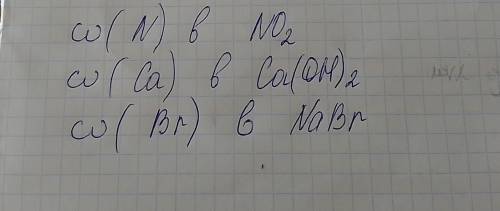 ω(N) в NO₂
ω(Ca) в Ca(OH)₂
ω(Br) в NaBr